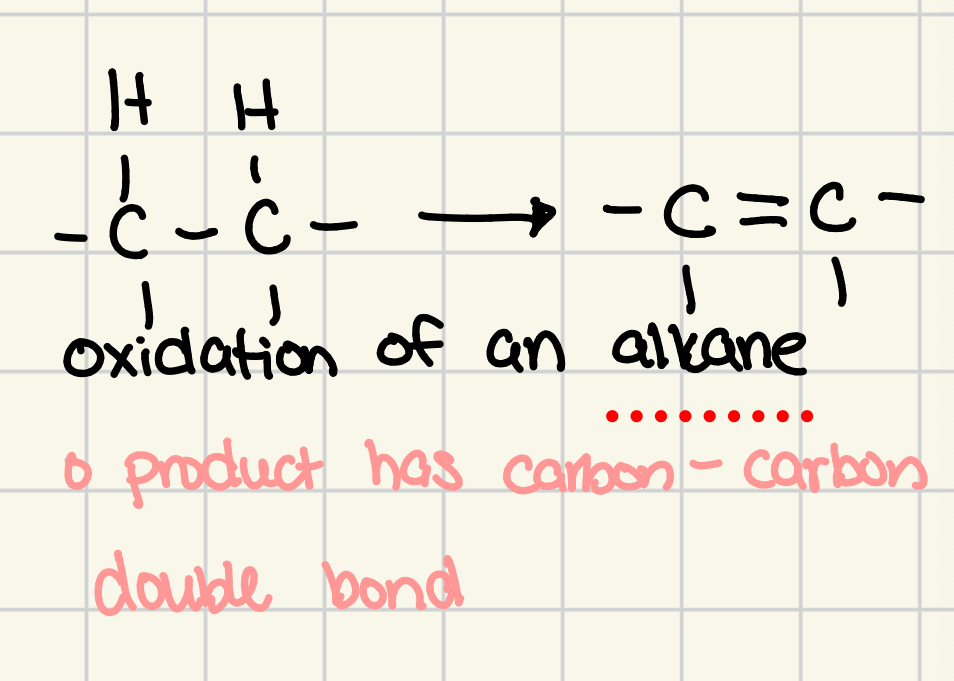 H H
- C - C - → - C = C -
oxidation of an alkane
o product has carbon - carbon
double bond